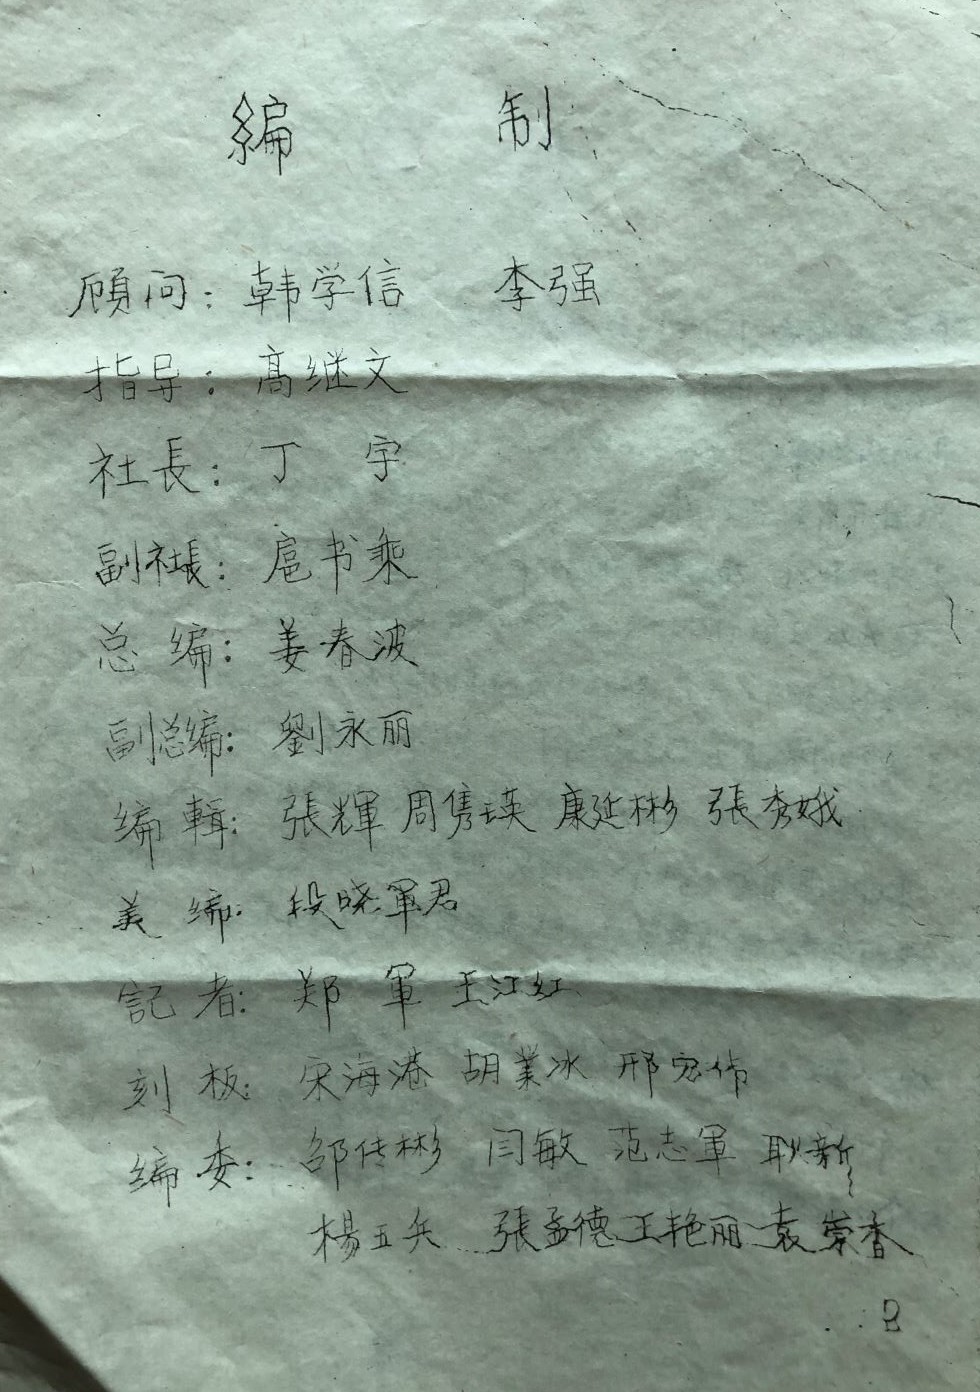 編 制
顾问：韩学信 李强
指导：髙继文
社長：丁 宇
副社長：扈书乘
总 编：姜春波
副总编：劉永丽
编 輯：張輝 周隽瑛 康延彬 張秀娥
美 编：段晓軍君
記 者：郑 軍 王江红
刻 板：宋海港 胡業冰 邢宏伟
编 委：邵传彬 闫敏 范志軍 耿新
楊五兵 張孟德 王艳丽 袁崇香
2